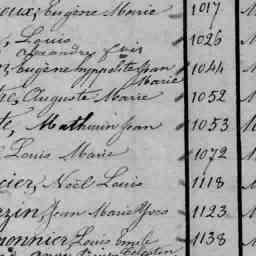 oux, Eugène Marie 1017
, Louis 1026
Alexandre
, Eugène hyppolite Jean 1044
Marie
, Auguste Marie 1052
te, Mathurin Jean 1053
Louis Marie 1072
cier, Noël Louis 1118
zin, Jean Marie Yves 1123
monnier, Louis Emile 1138
Célestin